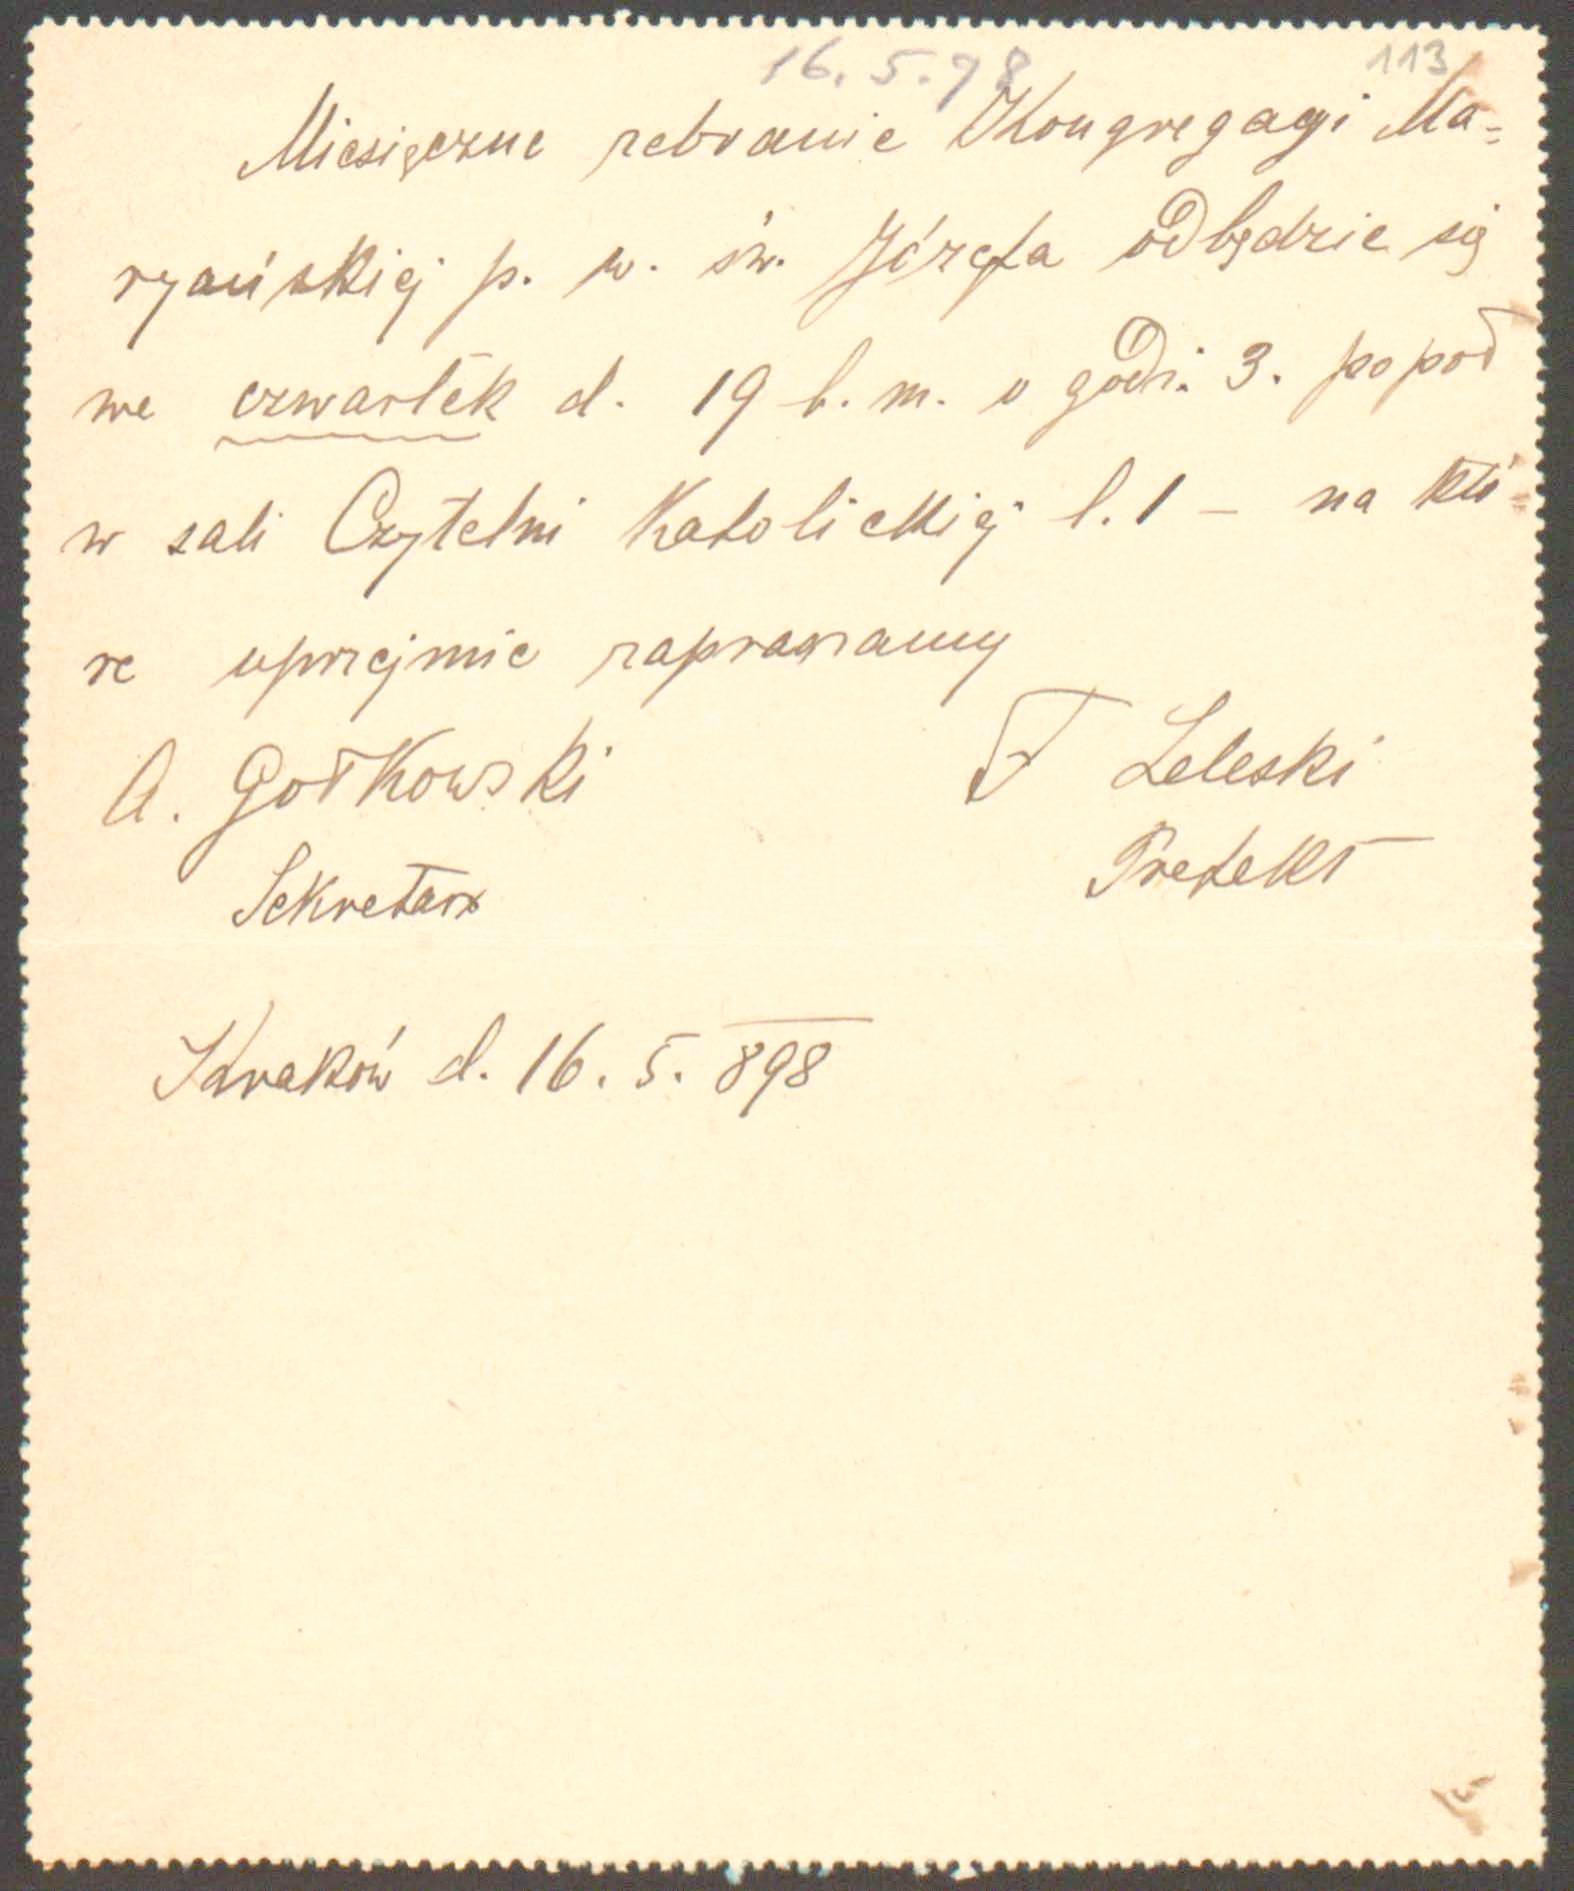 16. 5. 98 113
Miesięczne zebranie Kongregacyi Ma=
ryańskiej p. w. św. Józefa odbędzie się
we czwartek d. 19 b. m. o godz. 3. popoł
w sali Czytelni Katolickiej l. 1 – na któ=
re uprzejmie zapraszamy
A. Gołkowski F Leleski
Sekretarz Prefekt
Kraków d. 16. 5. 898